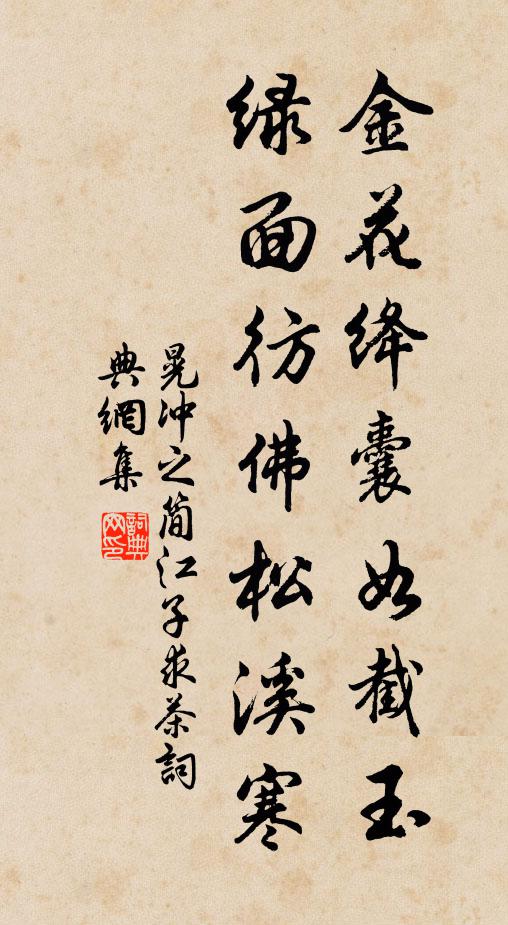 金花绛囊如截玉
绿面彷佛松溪寒
晃冲之简江子求茶詞
典網集
詞典网印